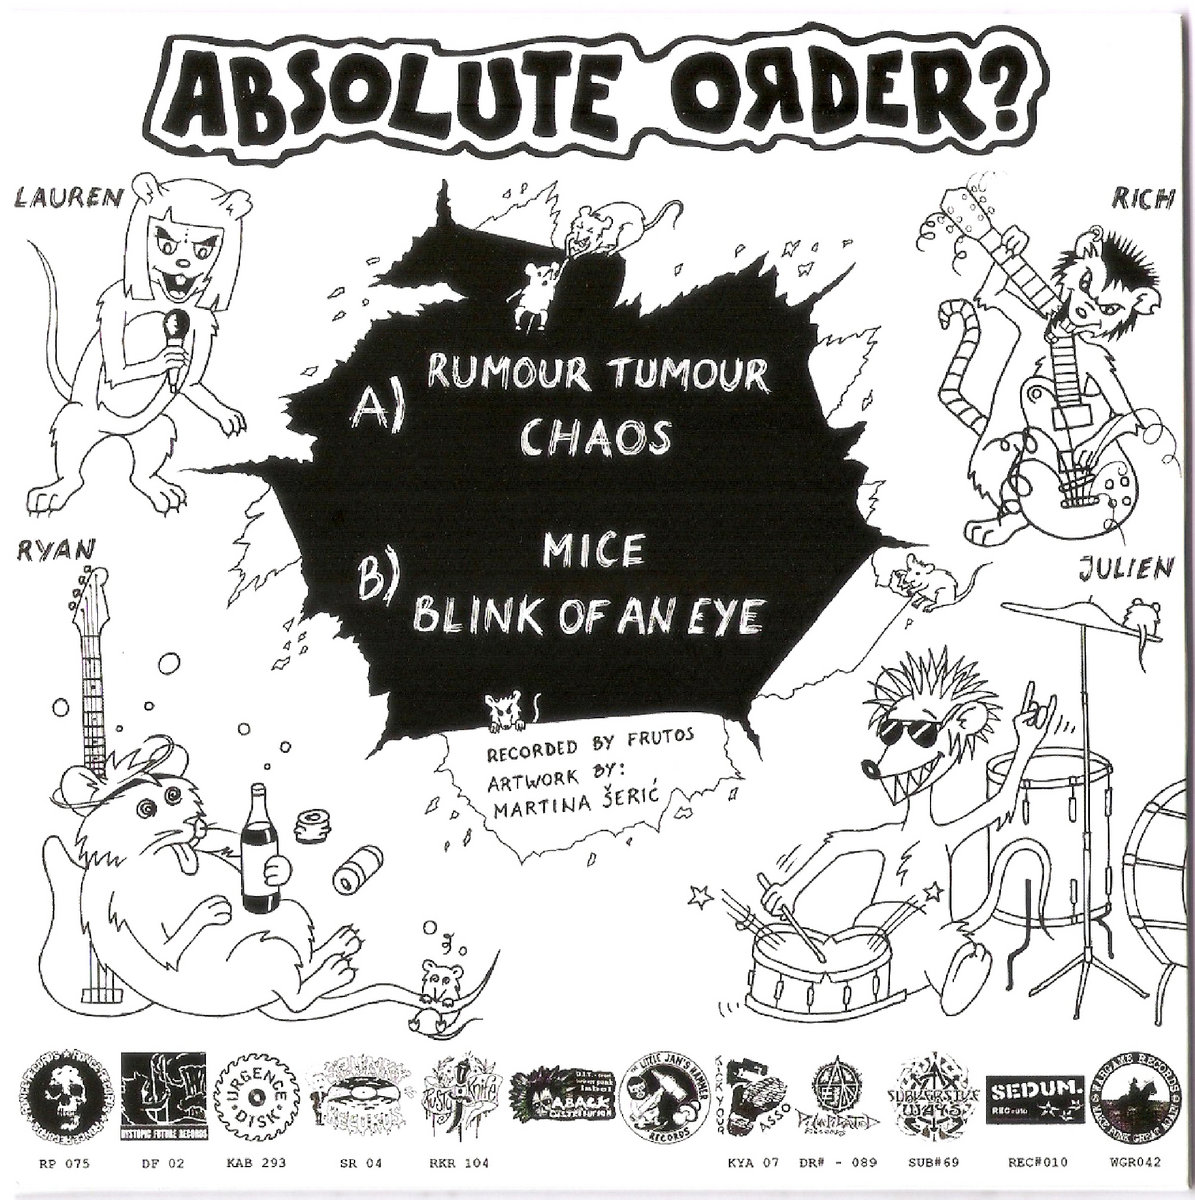 ABSOLUTE OЯDER?
LAUREN
RICH
A) RUMOUR TUMOUR
CHAOS
RYAN
JULIEN
B) MICE
BLINK OF AN EYE
RECORDED BY FRUTOS
ARTWORK BY:
MARTINA ŠERIĆ
DYSTOPIC FUTURE RECORDS
URGENCE
DISK
RECORDS
RUSTY KNIFE
ABACK
DISTRIBUTION
LITTLE JAN'S HAMMER
RECORDS
ASSO
SUBVERSIVE
WAYS
SEDUM.
WARGAME RECORDS
MAKE PUNK GREAT AGAIN
RP 075
DF 02
KAB 293
SR 04
RKR 104
KYA 07
DR# - 089
SUB#69
REC#010
WGR042